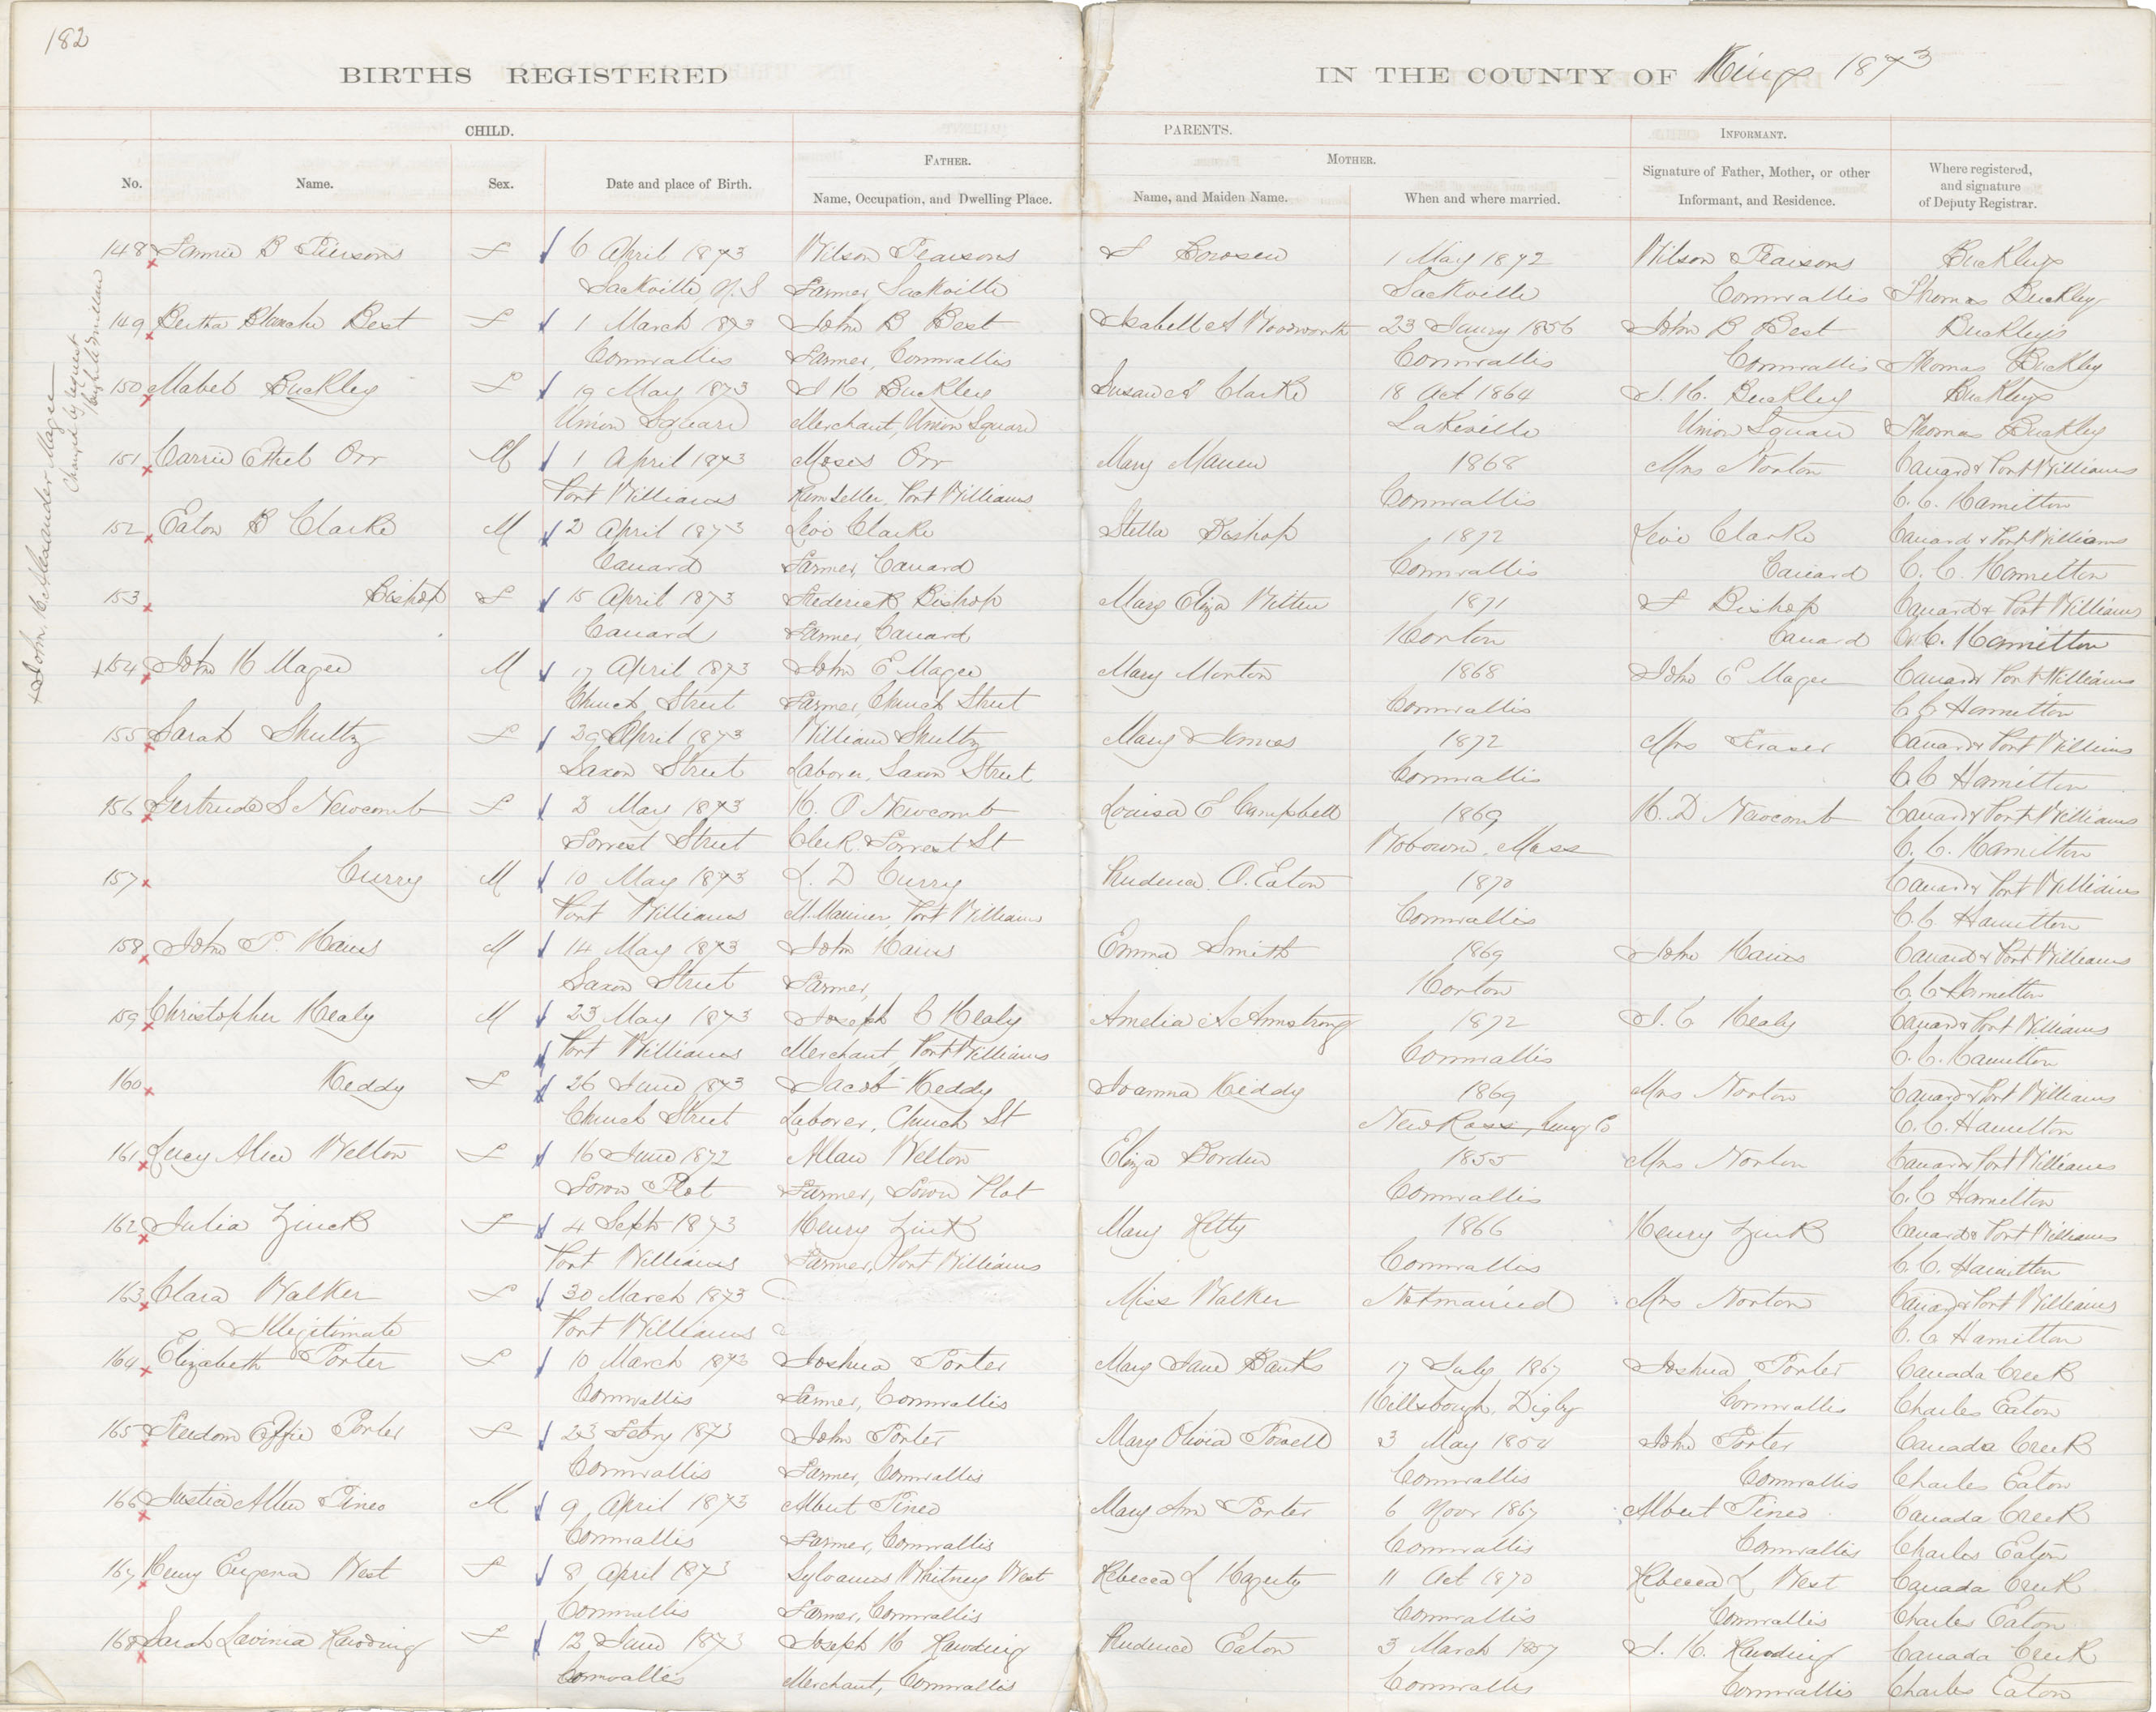 182
BIRTHS REGISTERED
IN THE COUNTY OF Kings 1873
CHILD.
PARENTS.
INFORMANT.
FATHER.
MOTHER.
No.
Name.
Sex.
Date and place of Birth.
Name, Occupation, and Dwelling Place.
Name, and Maiden Name.
When and where married.
Signature of Father, Mother, or other
Informant, and Residence.
Where registered,
and signature
of Deputy Registrar.
+ John H. Alexander Magee
Changed by request
148 Fannie B Pearsons F 6 April 1873 Wilson Pearsons 1 May 1872 Wilson Pearsons Buckleys
Sackville, N.S Farmer, Sackville Sackville Cornwallis Thomas Buckley
149 Bertha Blanche Best F 1 March 1873 John B Best Isabell A Woodworth 23 Jany 1856 John B Best Buckleys
Cornwallis Farmer, Cornwallis Cornwallis Cornwallis Thomas Buckley
150 Mabel Buckley F 19 May 1873 Buckley Susan A Clarke 18 Oct 1864 Buckley Buckleys
Union Square Merchant, Union Square Lakeville Union Square Thomas Buckley
151 Carrie Ethel Orr M 1 April 1873 Moses Orr Mary 1868 Mrs Norton Canard & Port Williams
Port Williams Rumseller, Port Williams Cornwallis C. C. Hamilton
152 Eaton B Clarke M 2 April 1873 Levi Clarke Stella Bishop 1872 Levi Clarke Canard & Port Williams
Canard Farmer, Canard Cornwallis Canard C. C. Hamilton
153 Bishop F 15 April 1873 Frederick Bishop Mary Eliza 1871 F Bishop Canard & Port Williams
Canard Farmer, Canard Horton Canard C. C. Hamilton
+154 John H Magee M 17 April 1873 John E Magee Mary Morton 1868 John E Magee Canard & Port Williams
Church Street Farmer, Church Street Cornwallis C C Hamilton
155 Sarah Shultz F 29 April 1873 William Shultz Mary 1872 Mrs Fraser Canard & Port Williams
Saxon Street Laborer, Saxon Street Cornwallis C C Hamilton
156 Gertrude S Newcomb F 2 May 1873 H. O Newcomb Louisa E Campbell 1869 H. D Newcomb Canard & Port Williams
Forrest Street Clerk. Forrest St Wobourn, Mass C. C. Hamilton
157 Curry M 10 May 1873 L. D Curry Prudence. O. Eaton 1870 Canard & Port Williams
Port Williams M. Mariner, Port Williams Cornwallis C. C Hamilton
158 John Hains M 14 May 1873 John Hains Emma Smith 1869 John Hains Canard & Port Williams
Saxon Street Farmer, Horton C. C Hamilton
159 Christopher Healy M 23 May 1873 Joseph C Healy Amelia A Armstrong 1872 J. C Healy Canard & Port Williams
Port Williams Merchant, Port Williams Cornwallis C. C. Hamilton
160 Keddy F 26 June 1873 Jacob Keddy Joanna Keddy 1869 Mrs Norton Canard & Port Williams
Church Street Laborer, Church St New Ross, Luny Co C. C. Hamilton
161 Lucy Alice Welton F 16 June 1872 Allan Welton Eliza Borden 1855 Mrs Norton Canard & Port Williams
Town Plot Farmer, Town Plot Cornwallis C. C Hamilton
162 Julia Zinck F 4 Sept 1873 Henry Zink Mary 1866 Henry Zink Canard & Port Williams
Port Williams Farmer, Port Williams Cornwallis C. C. Hamilton
163 Clara Walker F 30 March 1873 Miss Walker Not married Mrs Norton Canard & Port Williams
Illegitimate Port Williams C. C Hamilton
164 Elizabeth Porter F 10 March 1873 Joshua Porter Mary Jane Banks 17 July 1867 Joshua Porter Canada Creek
Cornwallis Farmer, Cornwallis Hillsbourgh, Digby Cornwallis Charles Eaton
165 Effie Porter F 23 Feby 1873 John Porter Mary Olivia Powell 3 May 1854 John Porter Canada Creek
Cornwallis Farmer, Cornwallis Cornwallis Cornwallis Charles Eaton
166 Allen Pineo M 9 April 1873 Albert Pineo Mary Ann Porter 6 Novr 1867 Albert Pineo Canada Creek
Cornwallis Farmer, Cornwallis Cornwallis Cornwallis Charles Eaton
167 Henry Eugena West F 8 April 1873 Sylvanus Whitney West Rebecca L 11 Oct 1870 Rebecca L West Canada Creek
Cornwallis Farmer, Cornwallis Cornwallis Cornwallis Charles Eaton
168 Sarah Lavinia Rawding F 12 June 1873 Joseph H Rawding Prudence Eaton 3 March 1857 J. H. Rawding Canada Creek
Cornwallis Merchant, Cornwallis Cornwallis Cornwallis Charles Eaton